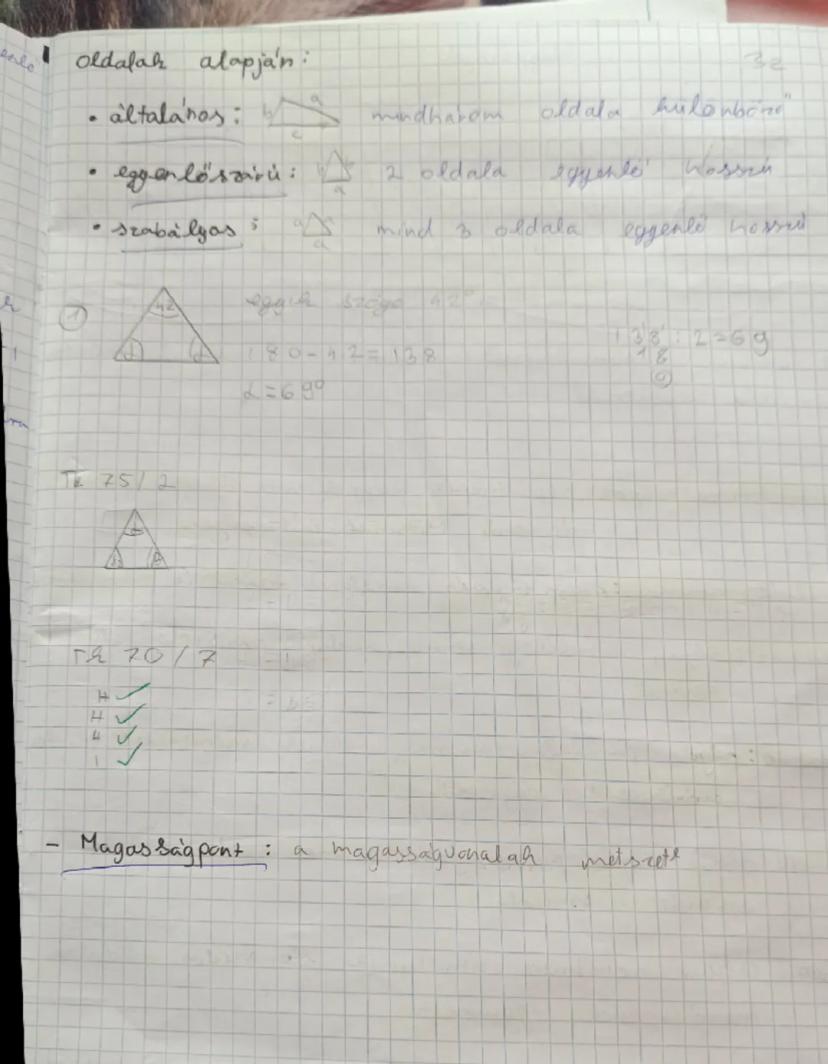 32
oldalak alapján:
• általános: b a c mindhárom oldala különböző
• egyenlőszárú: a 2 oldala egyenlő hosszú
• szabályos: a a mind 3 oldala egyenlő hosszú
① 42 α α egyik szöge 42°
180-42=138
138:2=69
18
0
α=69°
Tk 75/2
Tk 70/7
H
H
H
I
- Magasságpont: a magasságvonalak metszete